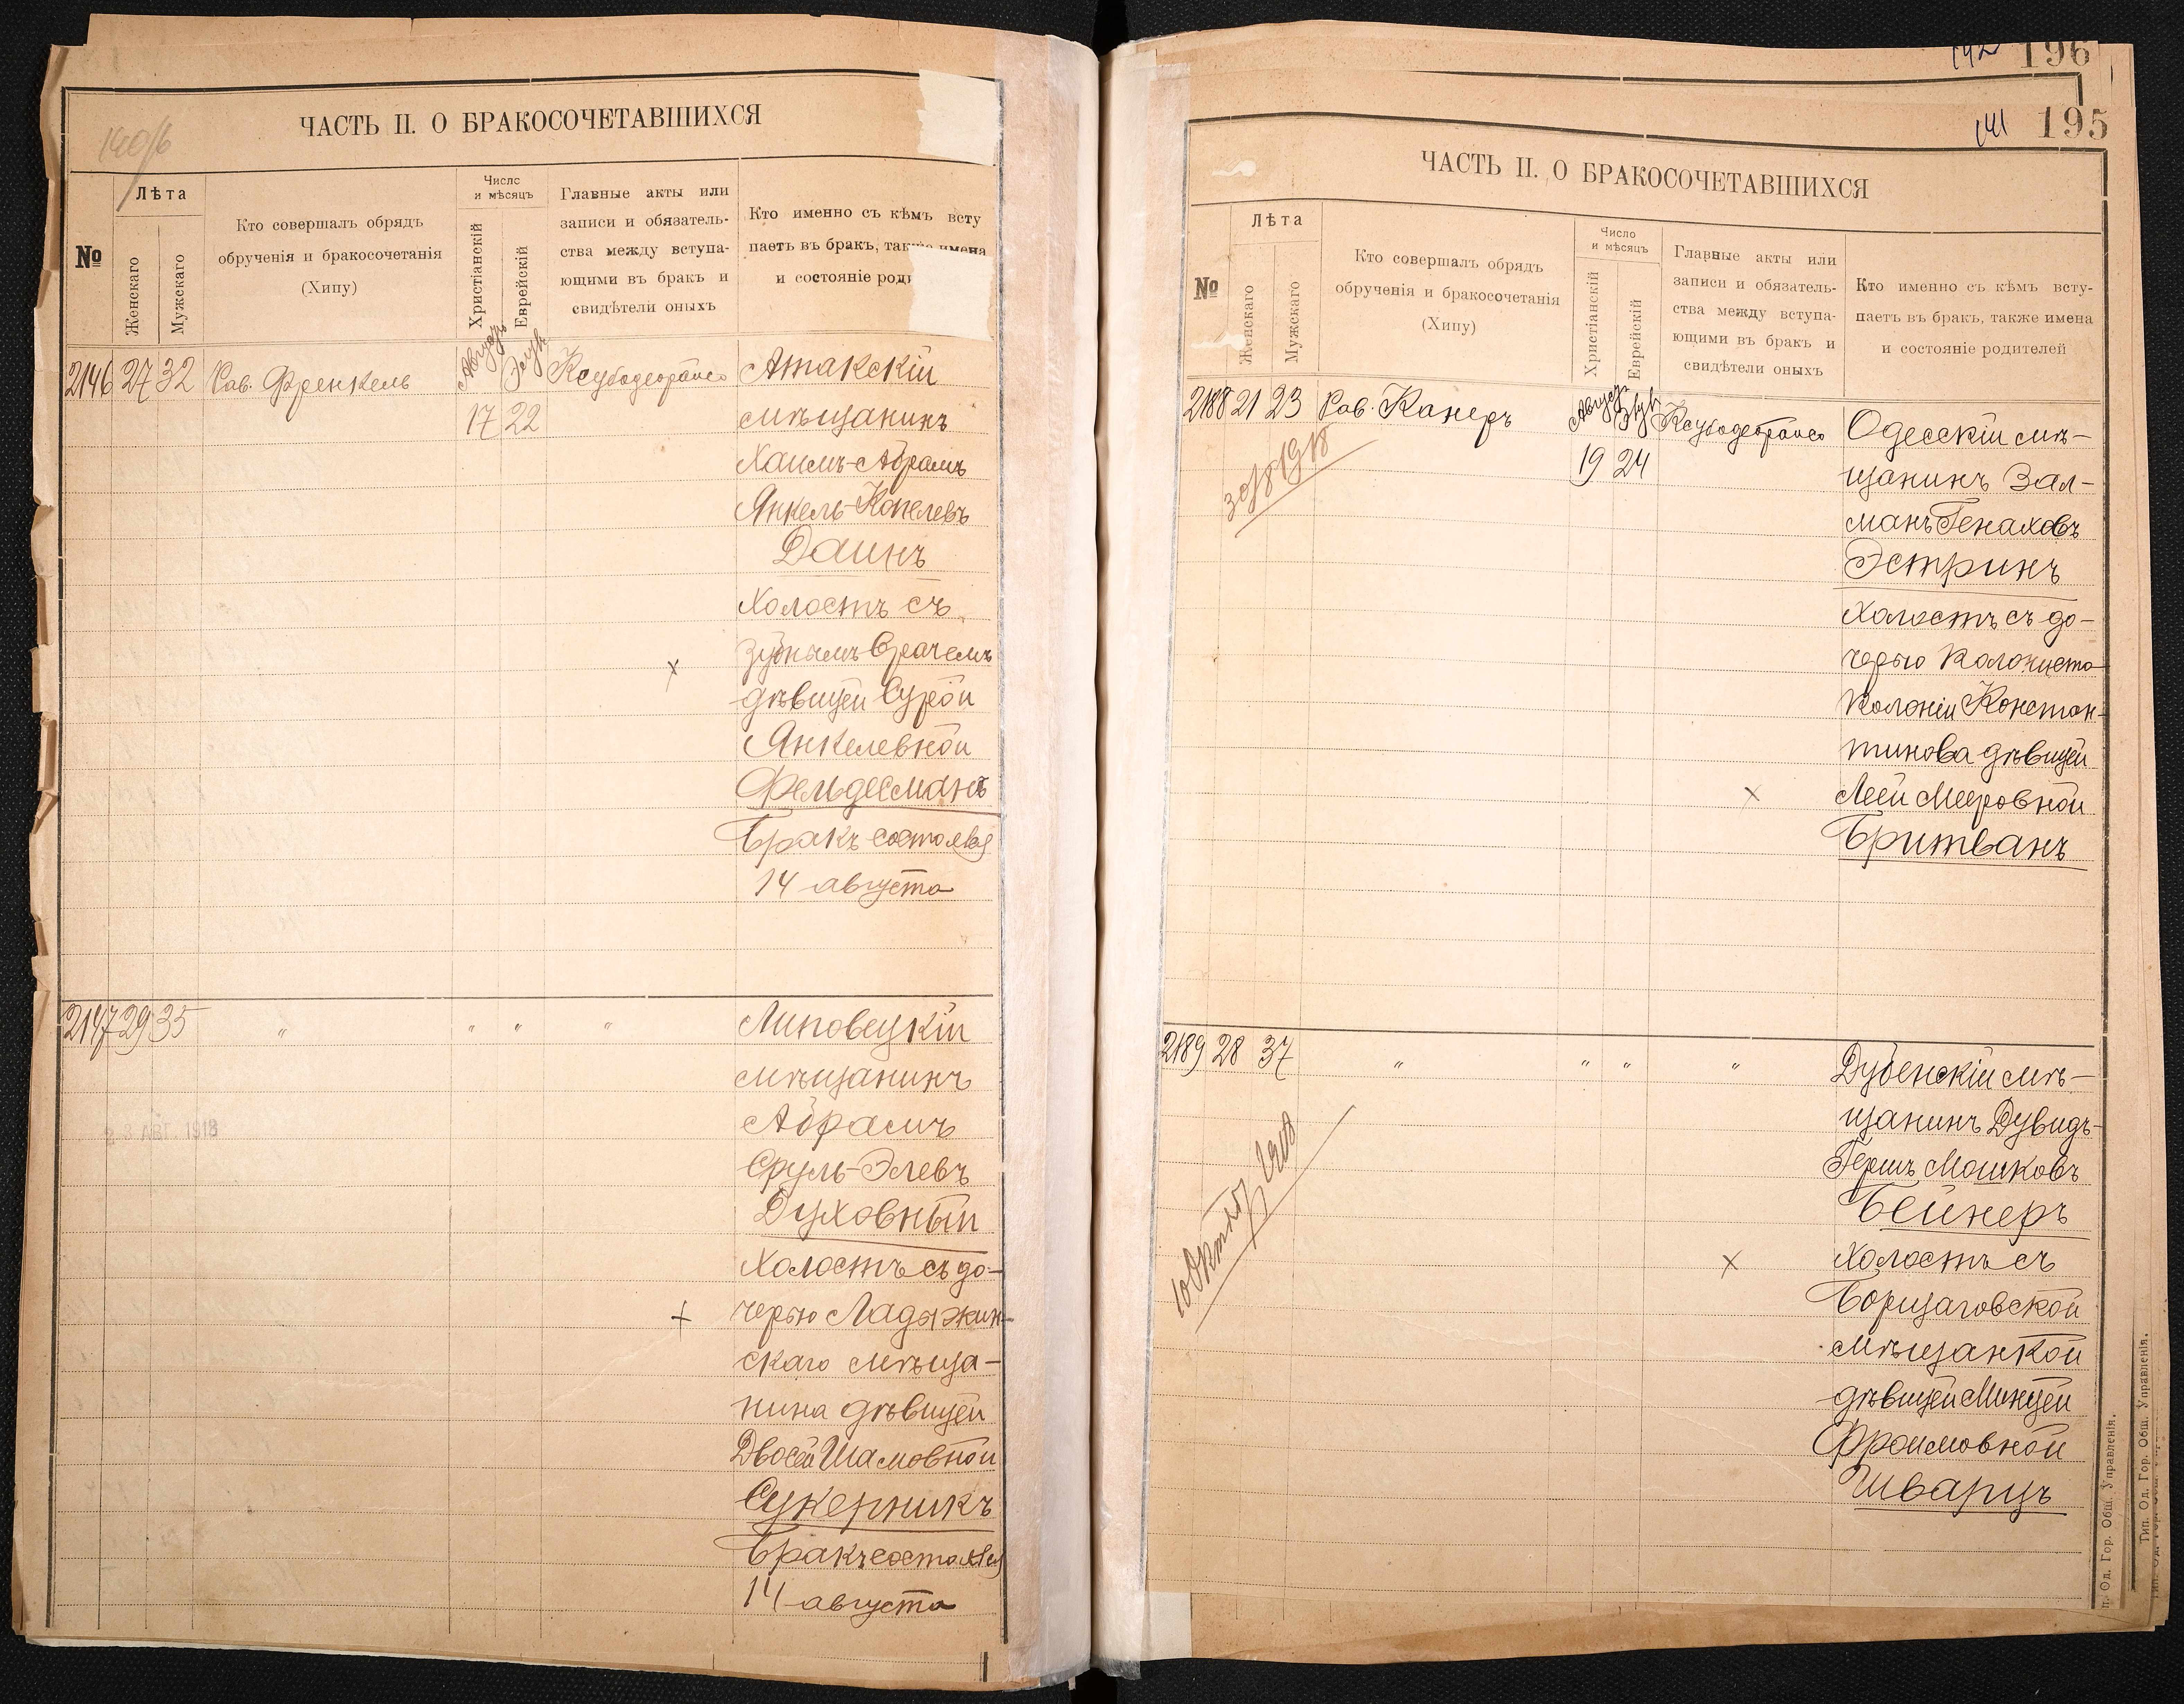 ЧАСТЬ II. О БРАКОСОЧЕТАВШИХСЯ
№
Лѣта
Женскаго
Мужскаго
Кто совершалъ обрядъ
обрученія и бракосочетанія
(Хипу)
Число
и мѣсяцъ
Христіанскій
Еврейскій
Главные акты или
записи и обязатель-
ства между вступа-
ющими въ бракъ и
свидѣтели оныхъ
Кто именно съ кѣмъ всту
паетъ въ бракъ, также имена
и состояніе роди
2146 27 32 Рав. Френкель Августъ Элулъ Атакскій
17 22 мѣщанинъ
Хаимъ-Абрамъ
Янкель-Копелевъ
Даинъ
Холостъ съ
зубнымъ врачемъ
дѣвицей Сурой
Янкелевной
Фельдесманъ
Бракъ состоялся
14 августа
2147 29 35 " " " " Липовецкій
мѣщанинъ
Абрамъ
Сруль-Элевъ
Духовный
Холостъ съ до-
черью Ладыжин-
скаго мѣща-
нина дѣвицей
Двосей Шамовной
Сукерникъ
Бракъ состоялся
14 августа
23 АВГ. 1918
196
141 195
ЧАСТЬ II. О БРАКОСОЧЕТАВШИХСЯ
№
Лѣта
Женскаго
Мужскаго
Кто совершалъ обрядъ
обрученія и бракосочетанія
(Хипу)
Число
и мѣсяцъ
Христіанскій
Еврейскій
Главные акты или
записи и обязатель-
ства между вступа-
ющими въ бракъ и
свидѣтели оныхъ
Кто именно съ кѣмъ всту-
паетъ въ бракъ, также имена
и состояніе родителей
2188 21 23 Рав. Канеръ Августъ Элулъ Одесскій мѣ-
19 24 щанинъ Зал-
манъ Генаховъ
Эстринъ
Холостъ съ до-
черью колониста
колоніи Констан-
тинова дѣвицей
Леей Мееровной
Бритванъ
30/8 1918
2189 28 37 " " " " Дубенскій мѣ-
щанинъ Дувидъ-
Гершъ Мошковъ
Бейнеръ
Холостъ съ
Борщаговской
мѣщанкой
дѣвицей Минцей
Фроимовной
Шварцъ
Тип. Од. Гор. Общ. Управленія.
п. Од. Гор. Общ. Управленія.